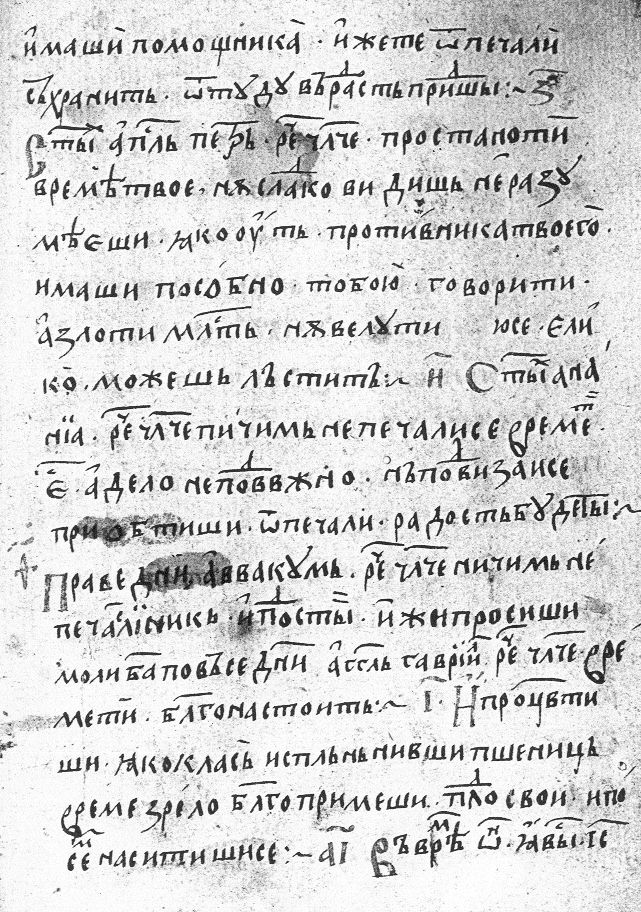 и҆маши помощника̀ · и҆жете ѿпечали
съхранить · ѿтꙋдꙋ въраⷣсть пришьⷣ :~ з҃
Ст҃ыи а҆пⷭ҇ль петръ · реч҃ чл҃че · простаноти
времѣ твое, нѫ слаⷣко видишь неразꙋ
мѣеши · ꙗко оу҆ть · противника твоего ·
имаши пособно · тобою · говорити ·
а҆ зло ти млⷭ҇ть · нѫ велꙋти юсе · е҆ли
ко, можешь льстить :~ и҃ Ст҃ыи ана
нїа · реч҃ чл҃че ничимь не печали се време
· е҃ · а҆ дело непоⷣвѫжно · нъ поⷣвизаисе
приѡбтиши · ѿпечали · радость бꙋдеты :~
Праведни а҆ввакꙋмь · реч҃ чл҃че ничимь не
печалникь · и҆ поⷣсты · и҆жи просиши
моли б҃а по въсе дн҃и а҆гг҃ль гаврїи҆л реч҃ чл҃че · вре
мети · бл҃го настоить :~ і҃ · И҆ процѵти
ши · ꙗко класъ испльньнивши пшеницъ
време зрело бл҃го примеши · плоⷣ свои ипо
семь насити шисе :~ а҃і Въ врѣмⷨе ѿн · ꙗ҆вы · іс҃